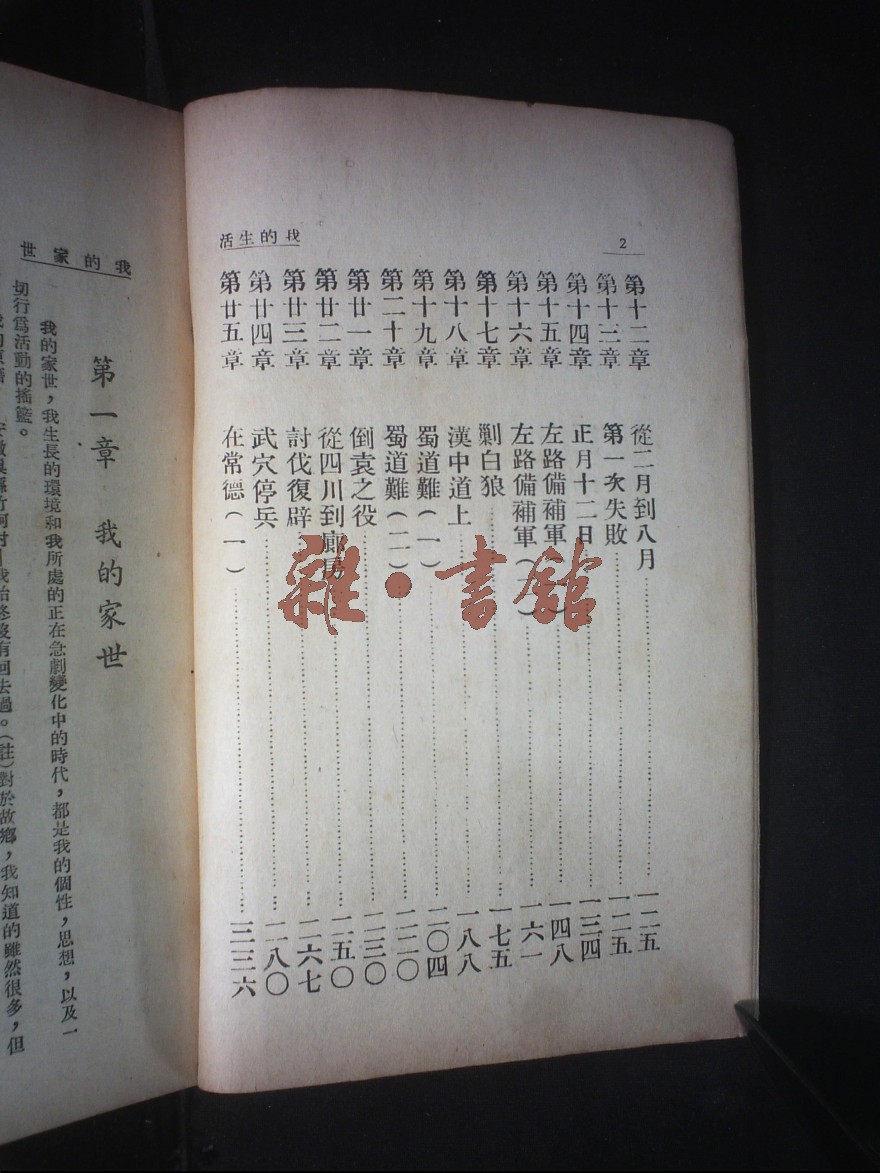 我的生活
2
第十二章 從二月到八月……一一五
第十三章 第一次失敗……一二五
第十四章 正月十二日……一三四
第十五章 左路備補軍……一四八
第十六章 左路備補軍……一六一
第十七章 剿白狼……一七五
第十八章 漢中道上……一八八
第十九章 蜀道難(一)……二〇四
第二十章 蜀道難(二)……二二〇
第廿一章 倒袁之役……二三〇
第廿二章 從四川到廊房……二五〇
第廿三章 討伐復辟……二六七
第廿四章 武穴停兵……二八〇
第廿五章 在常德(一)……三三六
雜·書館
我的家世
第一章 我的家世
我的家世,我生長的環境和我所處的正在急劇變化中的時代,都是我的個性,思想,以及一
切行為活動的搖籃。
我始終沒有回去過。(註)對於故鄉,我知道的雖然很多,但